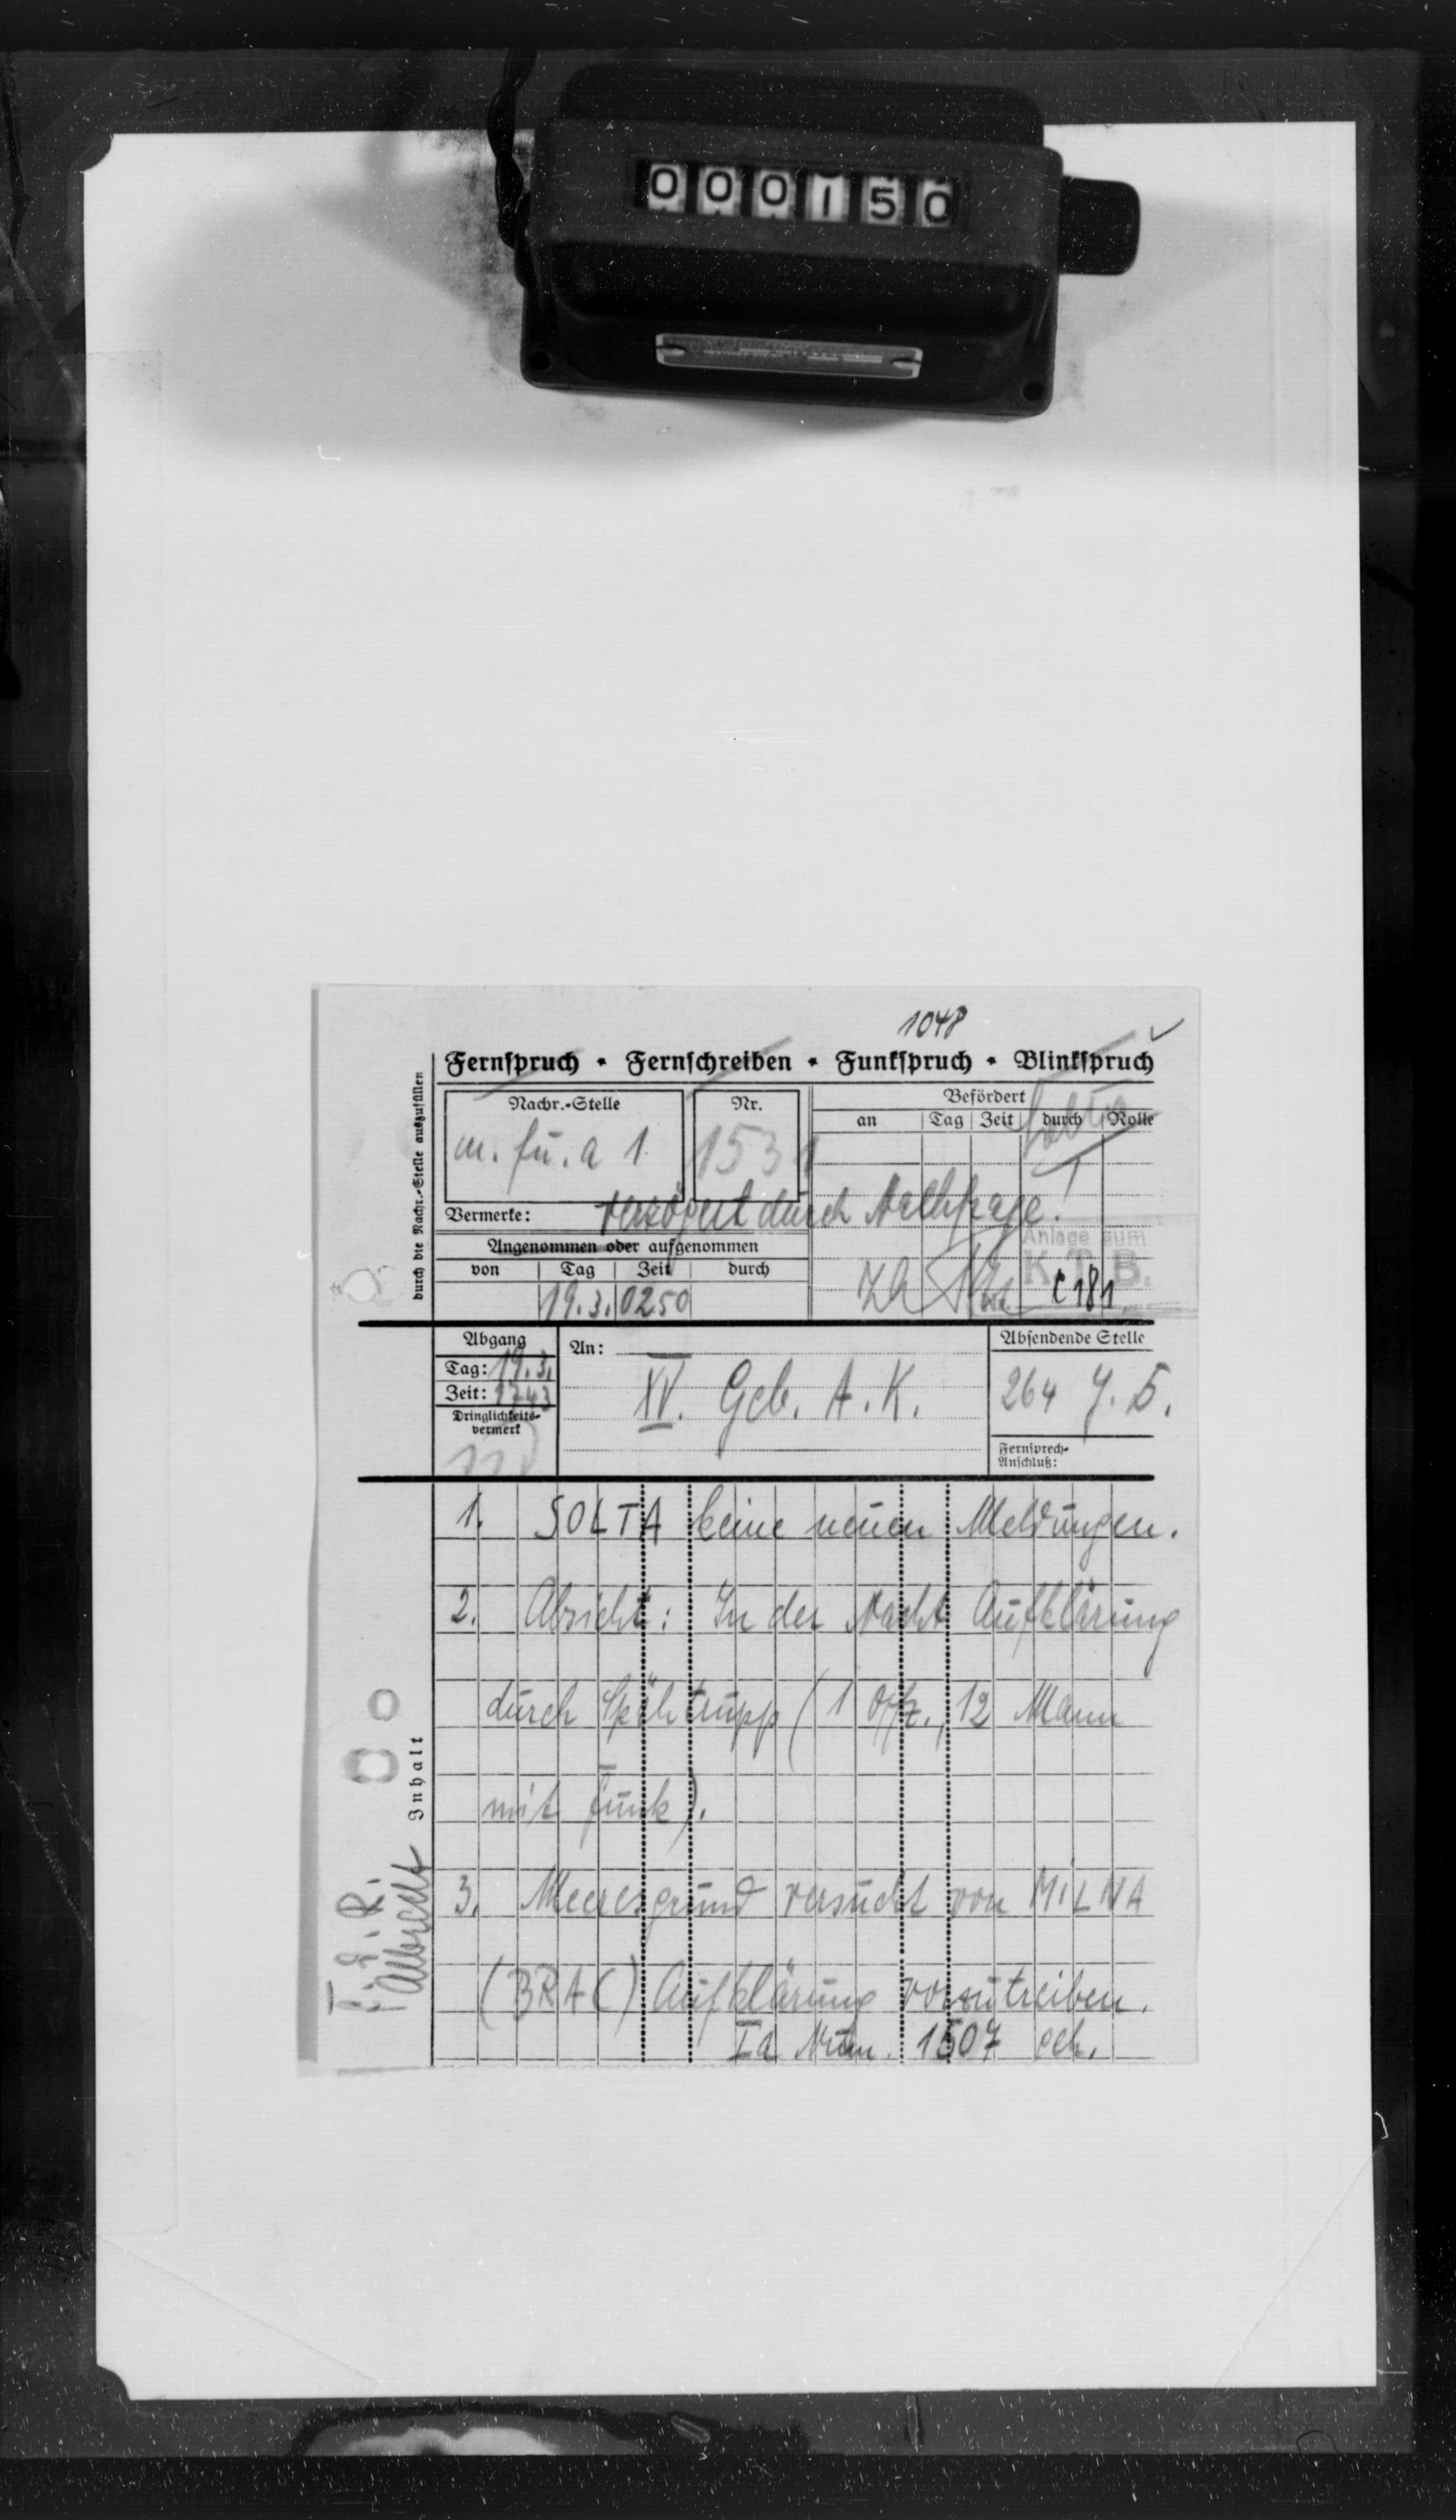 000150
1048
Fernspruch • Fernschreiben • Funkspruch • Blinkspruch
durch die Nachr.-Stelle auszufüllen
Nachr.-Stelle
m. fū. a 1
Nr.
1531
Befördert
an Tag Zeit durch Rolle
Vermerke: verzögert durch
Angenommen oder aufgenommen
von Tag Zeit durch
19.3. 0250
Anlage zum
K.T.B.
C 181
Abgang
Tag: 19.3.
Zeit: 1743
Dringlichkeits-
vermerk
An:
XV. Geb. A. K.
Absendende Stelle
264 J. D.
Fernsprech-
Anschluß:
Inhalt
1. SOLTA keine neuen Meldungen.
2. Absicht: In der Nacht Aufklärung
durch Spähtrupp (1 Offz., 12 Mann
mit Funk).
3. Meeresgrund versucht von MILNA
(BRAC) Aufklärung vorzutreiben.
Ia Num. 1507 geh.
F. d. R.
Albrecht